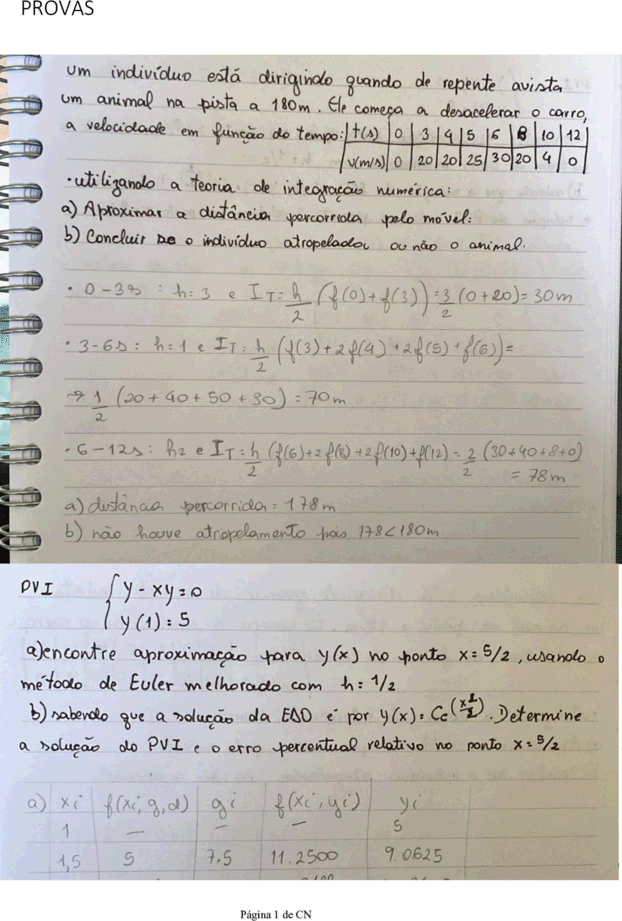 PROVAS
um indivíduo está dirigindo quando de repente avista
um animal na pista a 180m. Ele começa a desacelerar o carro,
a velocidade em função do tempo: t(s) 0 3 4 5 6 8 10 12
v(m/s) 0 20 20 25 30 20 4 0
• utilizando a teoria de integração numérica:
a) Aproximar a distância percorrida pelo móvel:
b) Concluir se o indivíduo atropelador ou não o animal.
• 0-3s : h=3 e IT= h/2 (f(0)+f(3)) = 3/2 (0+20)= 30m
• 3-6s : h=1 e IT= h/2 (f(3)+2f(4)+2f(5)+f(6))=
→ 1/2 (20+40+50+30) = 70m
• 6-12s: h2 e IT= h/2 (f(6)+2f(8)+2f(10)+f(12) = 2/2 (30+40+8+0)
= 78m
a) distância percorrida = 178m
b) não houve atropelamento pois 178<180m
PVI { y - xy = 0
y(1) = 5
a) encontre aproximação para y(x) no ponto x= 5/2, usando o
método de Euler melhorado com h= 1/2
b) sabendo que a solução da EDO é por y(x)= Ce^(x²/2). Determine
a solução do PVI e o erro percentual relativo no ponto x= 5/2
a) xi f(xi, y, d) gi f(xi, yi) yi
1 — — — 5
1,5 5 7.5 11.2500 9.0625
Página 1 de CN